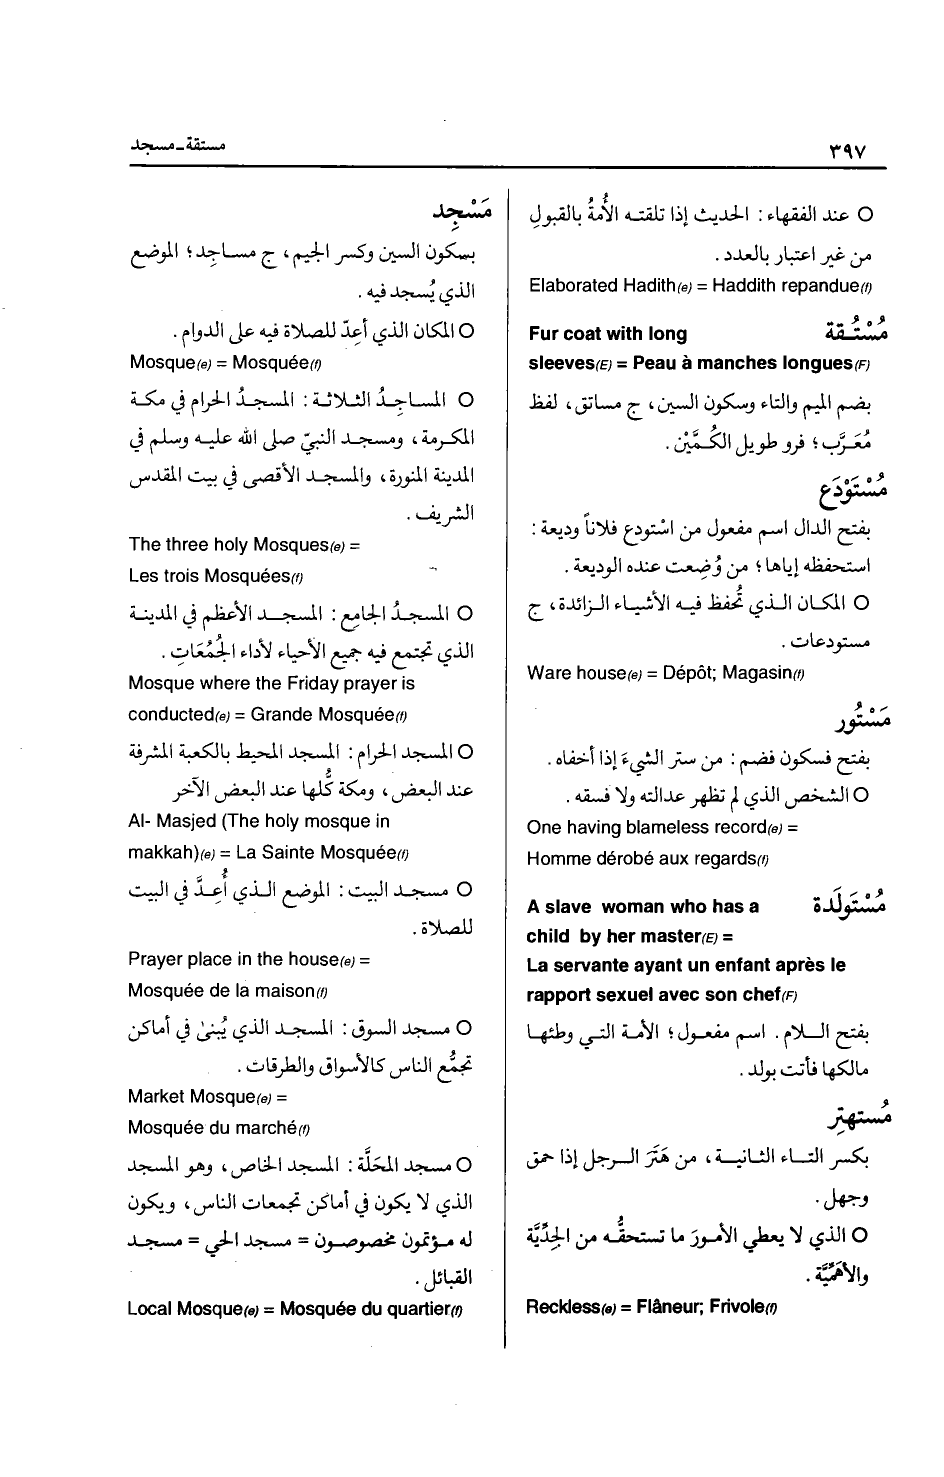 ٣٩٧
مستقة ـ مسجد
○ عند الفقهاء : الحديث إذا تلقته الأُمةُ بالقبولِ
من غير اعتبار بالعدد .
Elaborated Hadith(e) = Haddith repandue(f)
مُسْتُـقة
Fur coat with long
sleeves(E) = Peau à manches longues(F)
بضم الميم والتاء وسكون السين ، ج مساتق ، لفظ
مُعَرَّب ؛ فرو طويل الكُمَّيْن .
مُسْتَوْدَع
بفتح الدال اسم مفعول من استُودع فلاناً وديعة :
استحفظه إياها ؛ من وُضِعت عنده الوديعة .
○ المكـان الـذي تُحفظ فيـه الأشيـاء الـزائدة ، ج
مستودعات .
Ware house(e) = Dépôt; Magasin(f)
مَسْتُور
بفتح فسكون فضم : من ستر الشيءَ إذا أخفاه .
○ الشخص الذي لم تظهر عدالته ولا فسقه .
One having blameless record(e) =
Homme dérobé aux regards(f)
مُسْتَولَدة
A slave woman who has a
child by her master(E) =
La servante ayant un enfant après le
rapport sexuel avec son chef(F)
بفتح الـلام . اسم مفعـول ؛ الأمـة التـي وطئهـا
مالكها فأتت بولد .
مُستهتِر
بكسر التـاء الثانيـة ، من هَتَرَ الـرجل إذا حمق
وجهل .
○ الذي لا يعطي الأمورَ ما تستحقُّه من الجِدِّيَّة
والأهَمِّيَّة .
Reckless(e) = Flâneur; Frivole(f)
مَسْجِد
بسكون السين وكسر الجيم ، ج مساجِد ؛ الموضع
الذي يُسجد فيه .
○ المكان الذي أعِدّ للصلاة فيه على الدوام .
Mosque(e) = Mosquée(f)
○ المسـاجِدُ الثـلاثـة : المسجدُ الحرام في مكـة
المكرمة ، ومسجد النبيّ صلى الله عليه وسلم في
المدينة المنورة ، والمسجد الأقصى في بيت المقدس
الشريف .
The three holy Mosques(e) =
Les trois Mosquées(f)
○ المسجدُ الجامع : المسجـد الأعظم في المدينة
الذي تجتمع فيه جميع الأحياء لأداء الجُمُعَاتِ .
Mosque where the Friday prayer is
conducted(e) = Grande Mosquée(f)
○ المسجد الحرام : المسجد المحيط بالكعبة المشرفة
عند البعض ، ومكة كُلها عند البعض الآخر
Al- Masjed (The holy mosque in
makkah)(e) = La Sainte Mosquée(f)
○ مسجـد البيت : الموضع الـذي أُعِـدَّ في البيت
للصلاة .
Prayer place in the house(e) =
Mosquée de la maison(f)
○ مسجد السوق : المسجد الذي يُبنىٰ في أماكن
تجمُّع الناس كالأسواق والطرقات .
Market Mosque(e) =
Mosquée du marché(f)
○ مسجد المحَلَّة : المسجد الخاص ، وهو المسجد
الذي لا يكون في أماكن تجمعات الناس ، ويكون
له مـؤتمون مخصوصـون = مسجـد الحي = مسجـد
القبائل .
Local Mosque(e) = Mosquée du quartier(f)